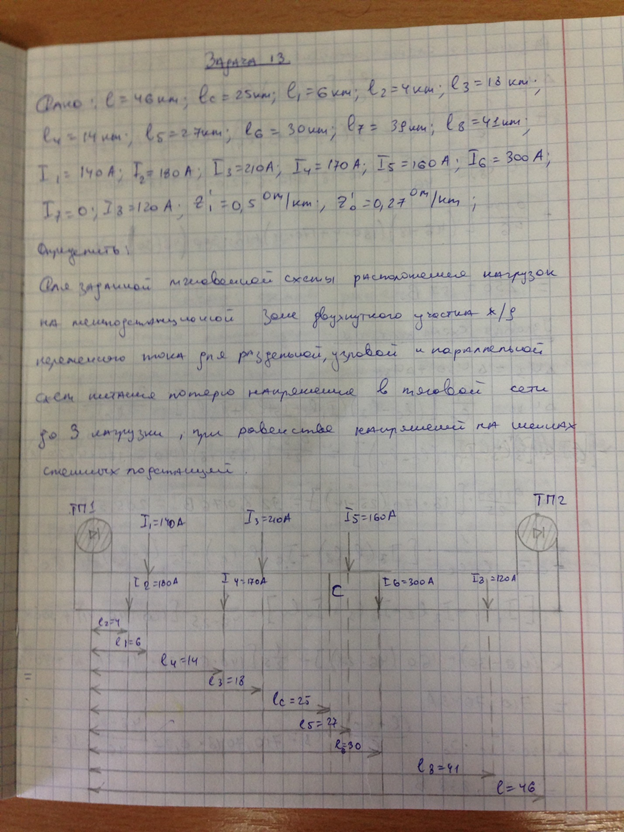 Задача 13
Дано: l=46км; lc=25км; l1=6км; l2=4км; l3=18км;
l4=14км; l5=27км; l6=30км; l7=39км; l8=41км;
I1=140А; I2=180А; I3=210А; I4=170А; I5=160А; I6=300А;
I7=0; I8=120А; Z1'=0,5 Ом/км; Z0'=0,27 Ом/км;
Определить:
Для заданной мгновенной схемы расположения нагрузок
на межподстанционной зоне двухпутного участка ж/д
переменного тока для раздельной, узловой и параллельной
схем питания потерю напряжения в тяговой сети
до 3 нагрузки, при равенстве напряжений на шинах
смежных подстанций.
ТП1 ТП2
I1=140А I3=210А I5=160А
I2=180А I4=170А C I6=300А I8=120А
l2=4
l1=6
l4=14
l3=18
lc=25
l5=27
l6=30
l8=41
l=46